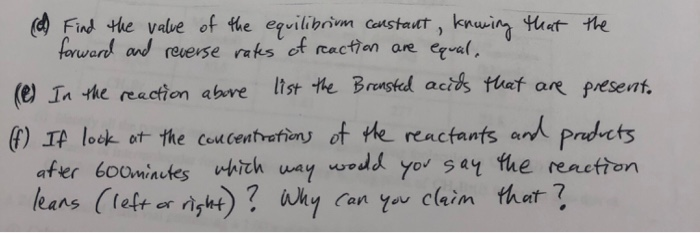 (d) Find the value of the equilibrium constant, knowing that the
forward and reverse rates of reaction are equal.
(e) In the reaction above list the Bronsted acids that are present.
(f) If look at the concentrations of the reactants and products
after 600minutes which way would you say the reaction
leans (left or right)? Why can you claim that?